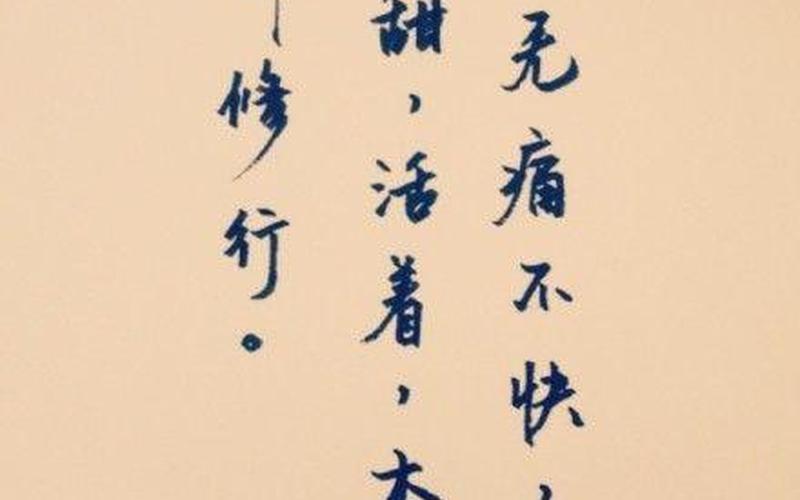 无痛不快，
甜，活着，本
修行。